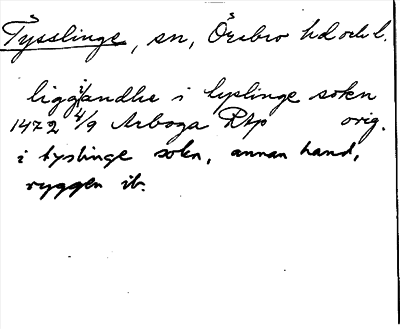 Tysslinge, sn, Örebro hd och l.
liggiandhe i tyslinge sokn
1472 4/9 Arboga Rtp orig.
i tyslinge sokn, annan hand,
ryggen ib.